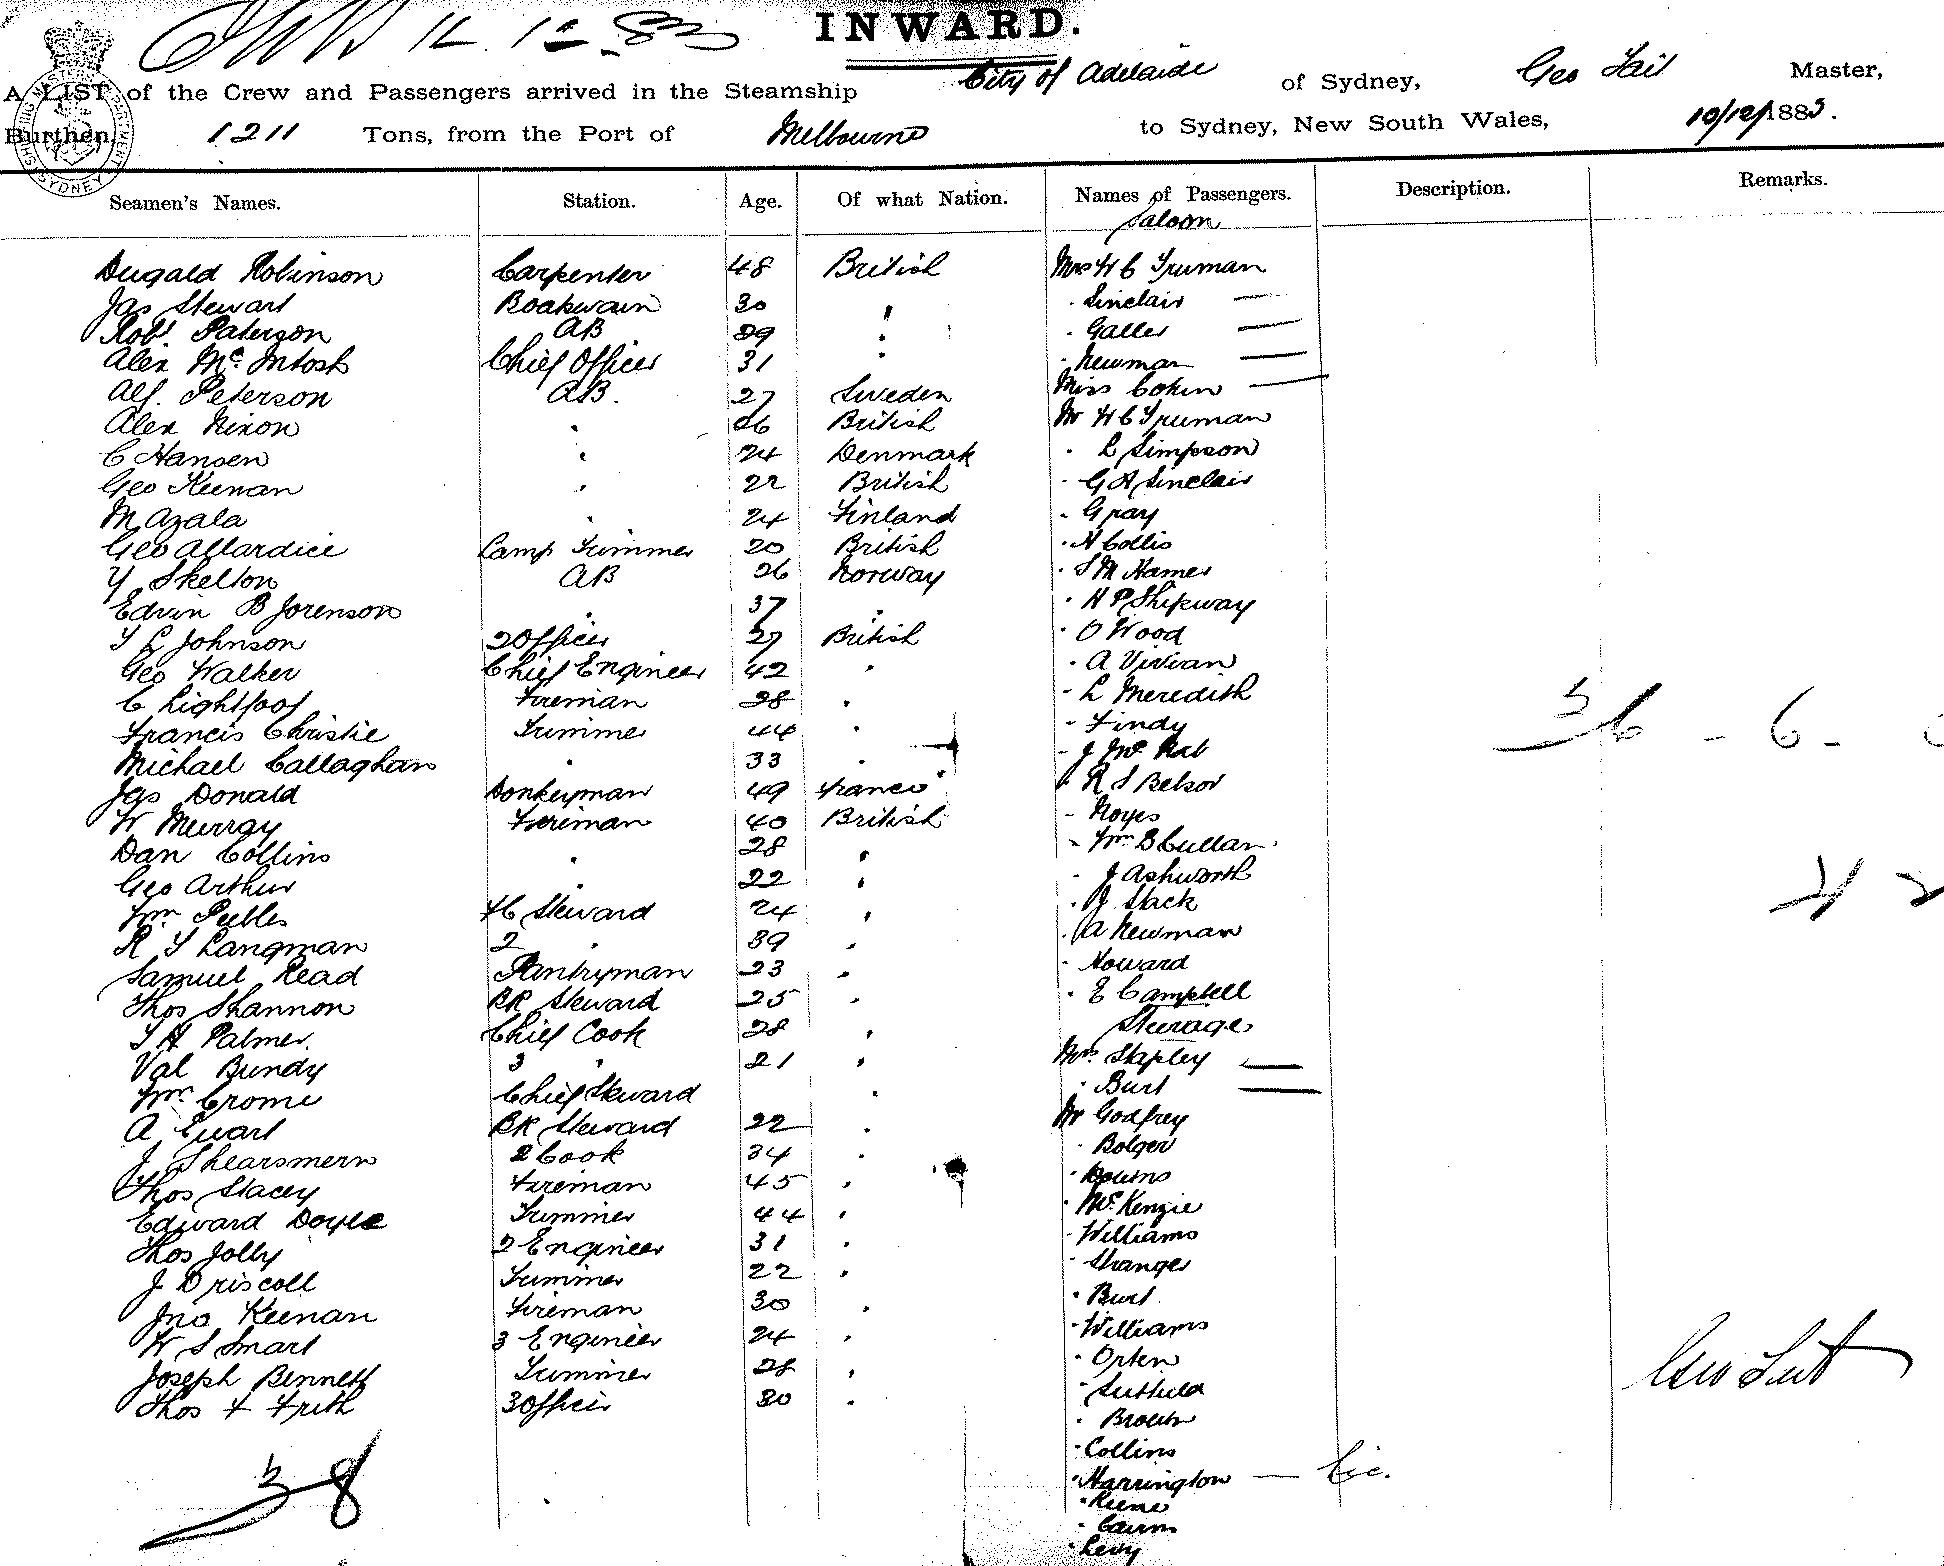 12.12.83
INWARD.
A LIST of the Crew and Passengers arrived in the Steamship City of Adelaide of Sydney, Geo Tait Master,
Burthen 1211 Tons, from the Port of Melbourne to Sydney, New South Wales, 10/12/1883.
Seamen's Names. Station. Age. Of what Nation. Names of Passengers. Description. Remarks.
Saloon
Dugald Robinson Carpenter 48 British Mrs H C Truman
Jas Stewart Boatswain 30 " " Sinclair —
Robt. Paterson AB 29 " " Galler —
Alex McIntosh Chief Officer 31 " " Newman —
Alf. Peterson AB. 27 Sweden Miss Cohen —
Alex Nixon " 26 British Mr H C Truman
C Hansen " 24 Denmark " L Simpson
Geo Keenan " 22 British " G A Sinclair
M Azala " 24 Finland " Gray
Geo Allardice Lamp Trimmer 20 British " H Collis
Y Skelton AB 26 Norway " S M Hames
Edvin B Jorenson " 37 " " H P Shipway
T L Johnson 2 Officer 27 British " O Wood
Geo Walker Chief Engineer 42 " " A Vivian
C Lightfoot Fireman 28 " " L Meredith
Francis Christie Trimmer 44 " " Findy
Michael Callaghan " 33 " " J McNab
Jas Donald Donkeyman 49 France " R S Belsor
W Murray Fireman 40 British " Noyes
Dan Collins " 28 " " Wm B Cullan
Geo Arthur " 22 " " J Ashworth
Wm Peebles FC Steward 24 " " J Stack
R T Langman 2 " 39 " " A Newman
Samuel Read Pantryman 23 " " Howard
Thos Shannon BR Steward 25 " " E Campbell
T H Palmer Chief Cook 28 " Steerage
Val Bundy 3 " 21 " Mrs Stapley —
Wm Crome Chief Steward " " Burt —
A Ewart BR Steward 22 " Mr Godfrey
J Shearsmern 2 Cook 34 " " Bolger
Thos Stacey Fireman 45 " " Downs
Edward Doyle Trimmer 44 " " McKenzie
Thos Jolly 2 Engineer 31 " " Williams
J Driscoll Trimmer 22 " " Stranger
Jno Keenan Fireman 30 " " Burt
W S Smart 3 Engineer 24 " " Williams
Joseph Bennett Trimmer 28 " " Orten
Thos F Frith 3 Officer 30 " " 
" Brown
" Collins
" Harrington —
" Keene
" Cairns
" Levy
38
36 - 6 -
Geo Tait